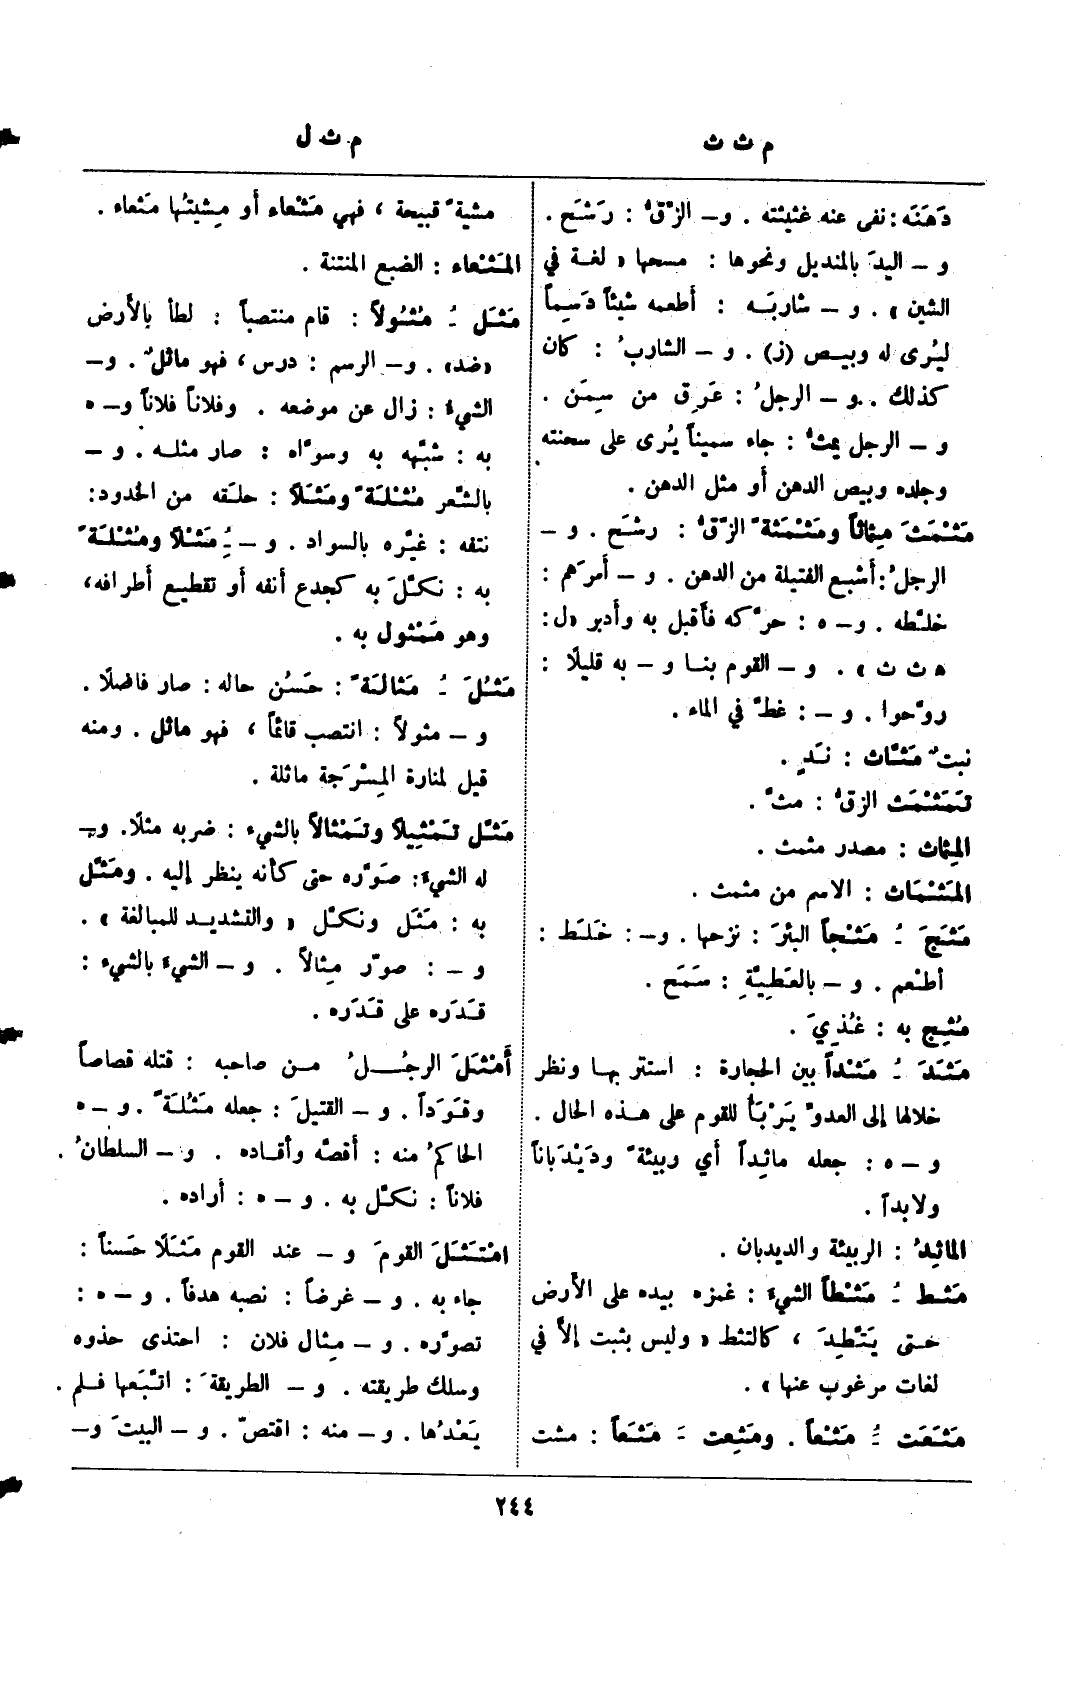 م ث ث
م ث ل
دَهَنَه : نفى عنه غثيثته . و– الزِّقُّ : رَشَح .
و – اليدَ بالمنديل ونحوها : مسحها « لغة في
الشين » . و – شاربَه : أطعمه شيئاً دَسِماً
ليُرى له وبيص (ز) . و – الشاربُ : كان
كذلك . و – الرجلُ : عَرِق من سِمَن .
و – الرجل يمثُّ : جاء سميناً يُرى على سحنته
وجلده وبيص الدهن أو مثل الدهن .
مَثْمَثَ مِثماثاً ومَثْمَثةً الزِّقُّ : رشَح . و –
الرجلُ : أشبع الفتيلة من الدهن . و – أمرَهم :
خلَّطه . و– ه : حرَّكه فأقبل به وأدبر «ل :
ه ث ث » . و – القوم بنا و – به قليلًا :
روَّحوا . و – : غطَّ في الماء .
نبتٌ مَثَّاث : نَدٍ .
تَمَثْمَث الزقُّ : مثَّ .
المِثماث : مصدر مثمث .
المَثْمَاث : الاسم من مثمث .
مَثَجَ ـُ مَثْجاً البئرَ : نزحها . و– : خَلَط :
أطعم . و – بالعَطِيَّةِ : سَمَح .
مُثِج به : غُذِيَ .
مَثَدَ ـُ مَثْداً بين الحجارة : استتر بها ونظر
خلالها إلى العدوّ يَرْبَأُ للقوم على هذه الحال .
و – ه : جعله ماثِداً أي ربيئةً ودَيْدَباناً
ولابداً .
الماثِدُ : الربيئة والديدبان .
مَثَط ـُ مَثْطاً الشيءَ : غمزه بيده على الأرض
حتى يَتَّطِدَ ، كالنثط « وليس بثبت إلاَّ في
لغات مرغوب عنها » .
مَثَعَت ـُ مَثْعاً . ومَثِعت ـَ مَثَعاً : مشت
مشيةً قبيحة ، فهي مَثْعاء أو مِشيتُها مَثعاء .
المَثْعاء : الضبع المنتنة .
مَثَل ـُ مُثُولاً : قام منتصباً : لطأ بالأرض
«ضد» . و– الرسم : درس ، فهو ماثلٌ . و–
الشيءُ : زال عن موضعه . وفلاناً فلاناً و– ه
به : شبَّهه به وسوَّاه : صار مثله . و –
بالشَّعر مُثْلَةً ومَثَلاً : حلَقه من الخدود :
نتفه : غيَّره بالسواد . و – ـُ مَثْلاً ومُثْلَةً
به : نكَّلَ به كجدع أنفه أو تقطيع أطرافه ،
وهو مَمْثول به .
مَثُلَ ـُ مَثالَةً : حَسُن حاله : صار فاضلًا .
و – مثولاً : انتصب قائماً ، فهو ماثل . ومنه
قيل لمنارة المِسْرَجة ماثلة .
مَثَّل تَمْثِيلاً وتَمْثالاً بالشيء : ضربه مثلًا. و–
له الشيءَ : صَوَّره حتى كأنه ينظر إليه . ومَثَّل
به : مَثَل ونكَّل « والتشديد للمبالغة » .
و – : صوّر مِثالاً . و – الشيءَ بالشيء :
قَدَره على قَدَره .
أَمْثَلَ الرجُلُ من صاحبه : قتله قصاصاً
وقَوَداً . و – القتيلَ : جعله مَثُلَةً . و – ه
الحاكمُ منه : أقصَّه وأقاده . و – السلطانُ
فلاناً : نكَّل به . و – ه : أراده .
امْتَثَلَ القومَ و – عند القوم مَثَلًا حَسناً :
جاء به . و – غرضاً : نصبه هدفاً . و – ه :
تصوَّره . و – مِثال فلان : احتذى حذوه
وسلك طريقته . و – الطريقةَ : اتَّبَعها فلم
يَعْدُها . و – منه : اقتصّ . و – البيتَ و–
٢٤٤